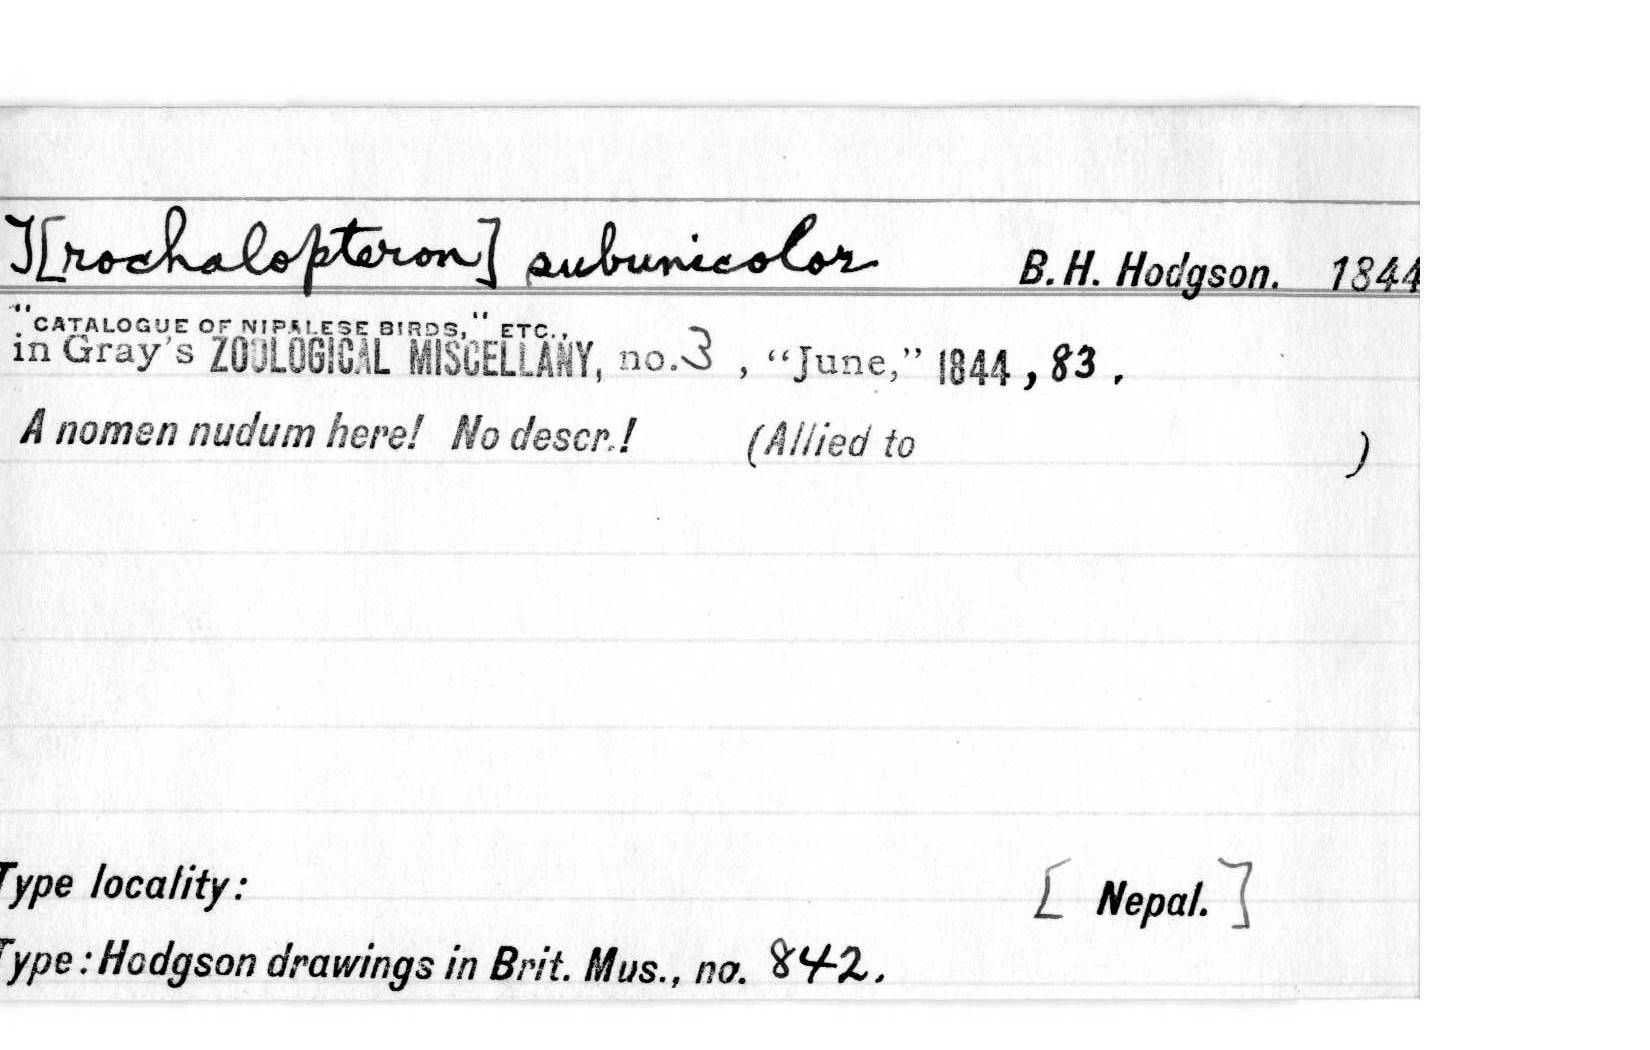 T[rochalopteron] subunicolor B.H. Hodgson. 1844
"CATALOGUE OF NIPALESE BIRDS," ETC.,
in Gray's ZOOLOGICAL MISCELLANY, no. 3, "June," 1844, 83.
A nomen nudum here! No descr.! (Allied to )
Type locality: [Nepal.]
Type: Hodgson drawings in Brit. Mus., no. 842.